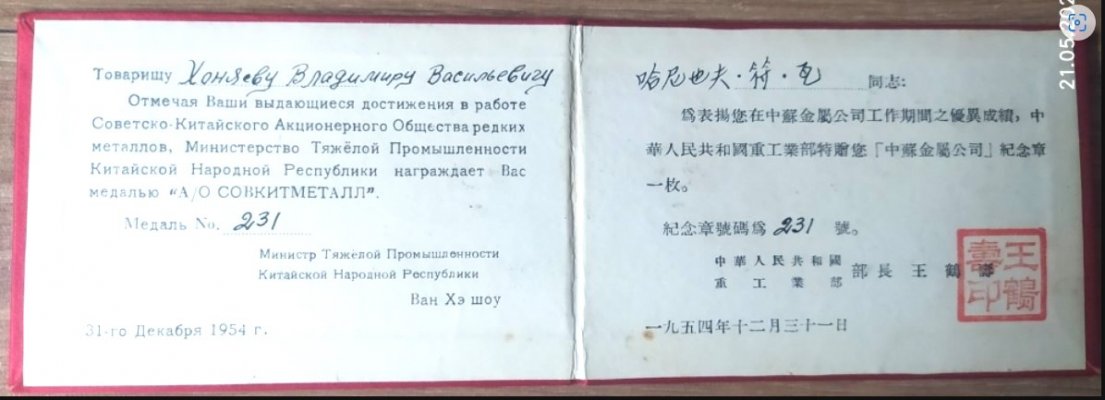 Товарищу Хоняеву Владимиру Васильевичу
Отмечая Ваши выдающиеся достижения в работе
Советско-Китайского Акционерного Общества редких
металлов, Министерство Тяжёлой Промышленности
Китайской Народной Республики награждает Вас
медалью “А/О СОВКИТМЕТАЛЛ”.
Медаль No. 231
Министр Тяжелой Промышленности
Китайской Народной Республики
Ван Хэ шоу
31-го Декабря 1954 г.
哈尼也夫·符·瓦 同志:
爲表揚您在中蘇金屬公司工作期間之優異成績，中
華人民共和國重工業部特贈您「中蘇金屬公司」紀念章
一枚。
紀念章號碼爲 231 號。
中華人民共和國
重工業部
部長 王鶴壽
王鶴
壽印
一九五四年十二月三十一日
21.05.202